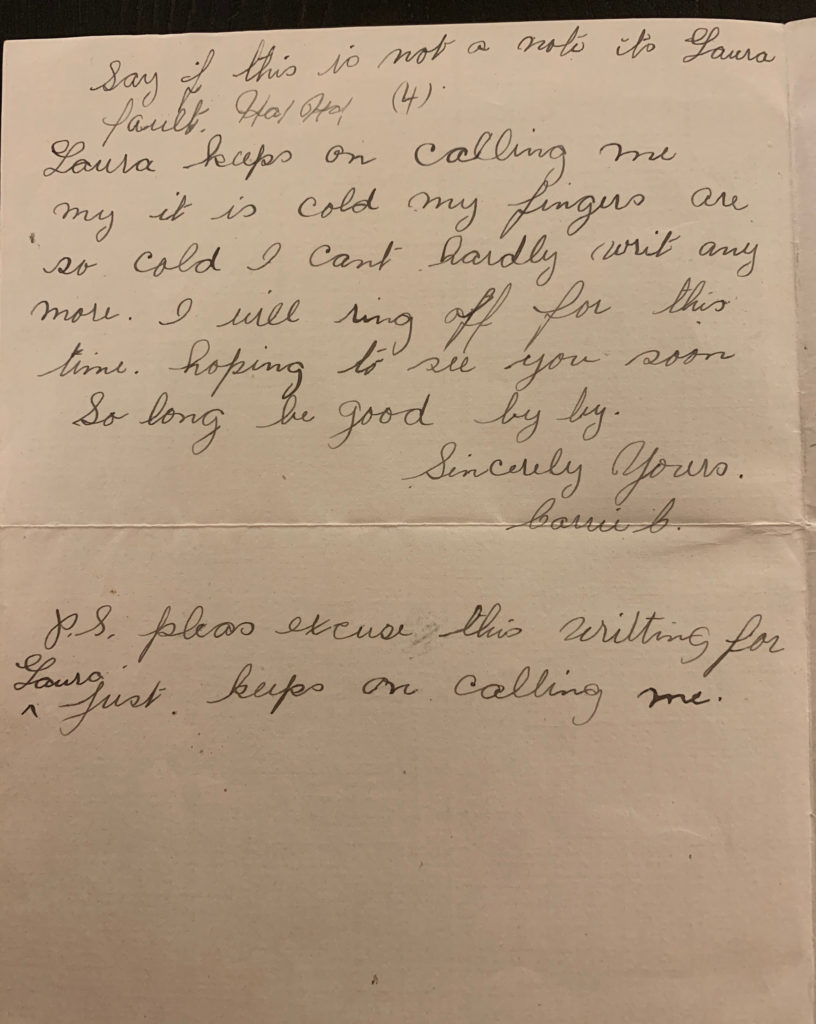 Say if this is not a note its Laura
fault. Ha! Ha! (4)
Laura keeps on calling me
my it is cold my fingers are
so cold I cant hardly writ any
more. I will ring off for this
time. hoping to see you soon
So long be good by by.
Sincerely Yours.
Carrie C.
P.S. pleas excuse this writting for
Laura
^ just keeps on calling me.